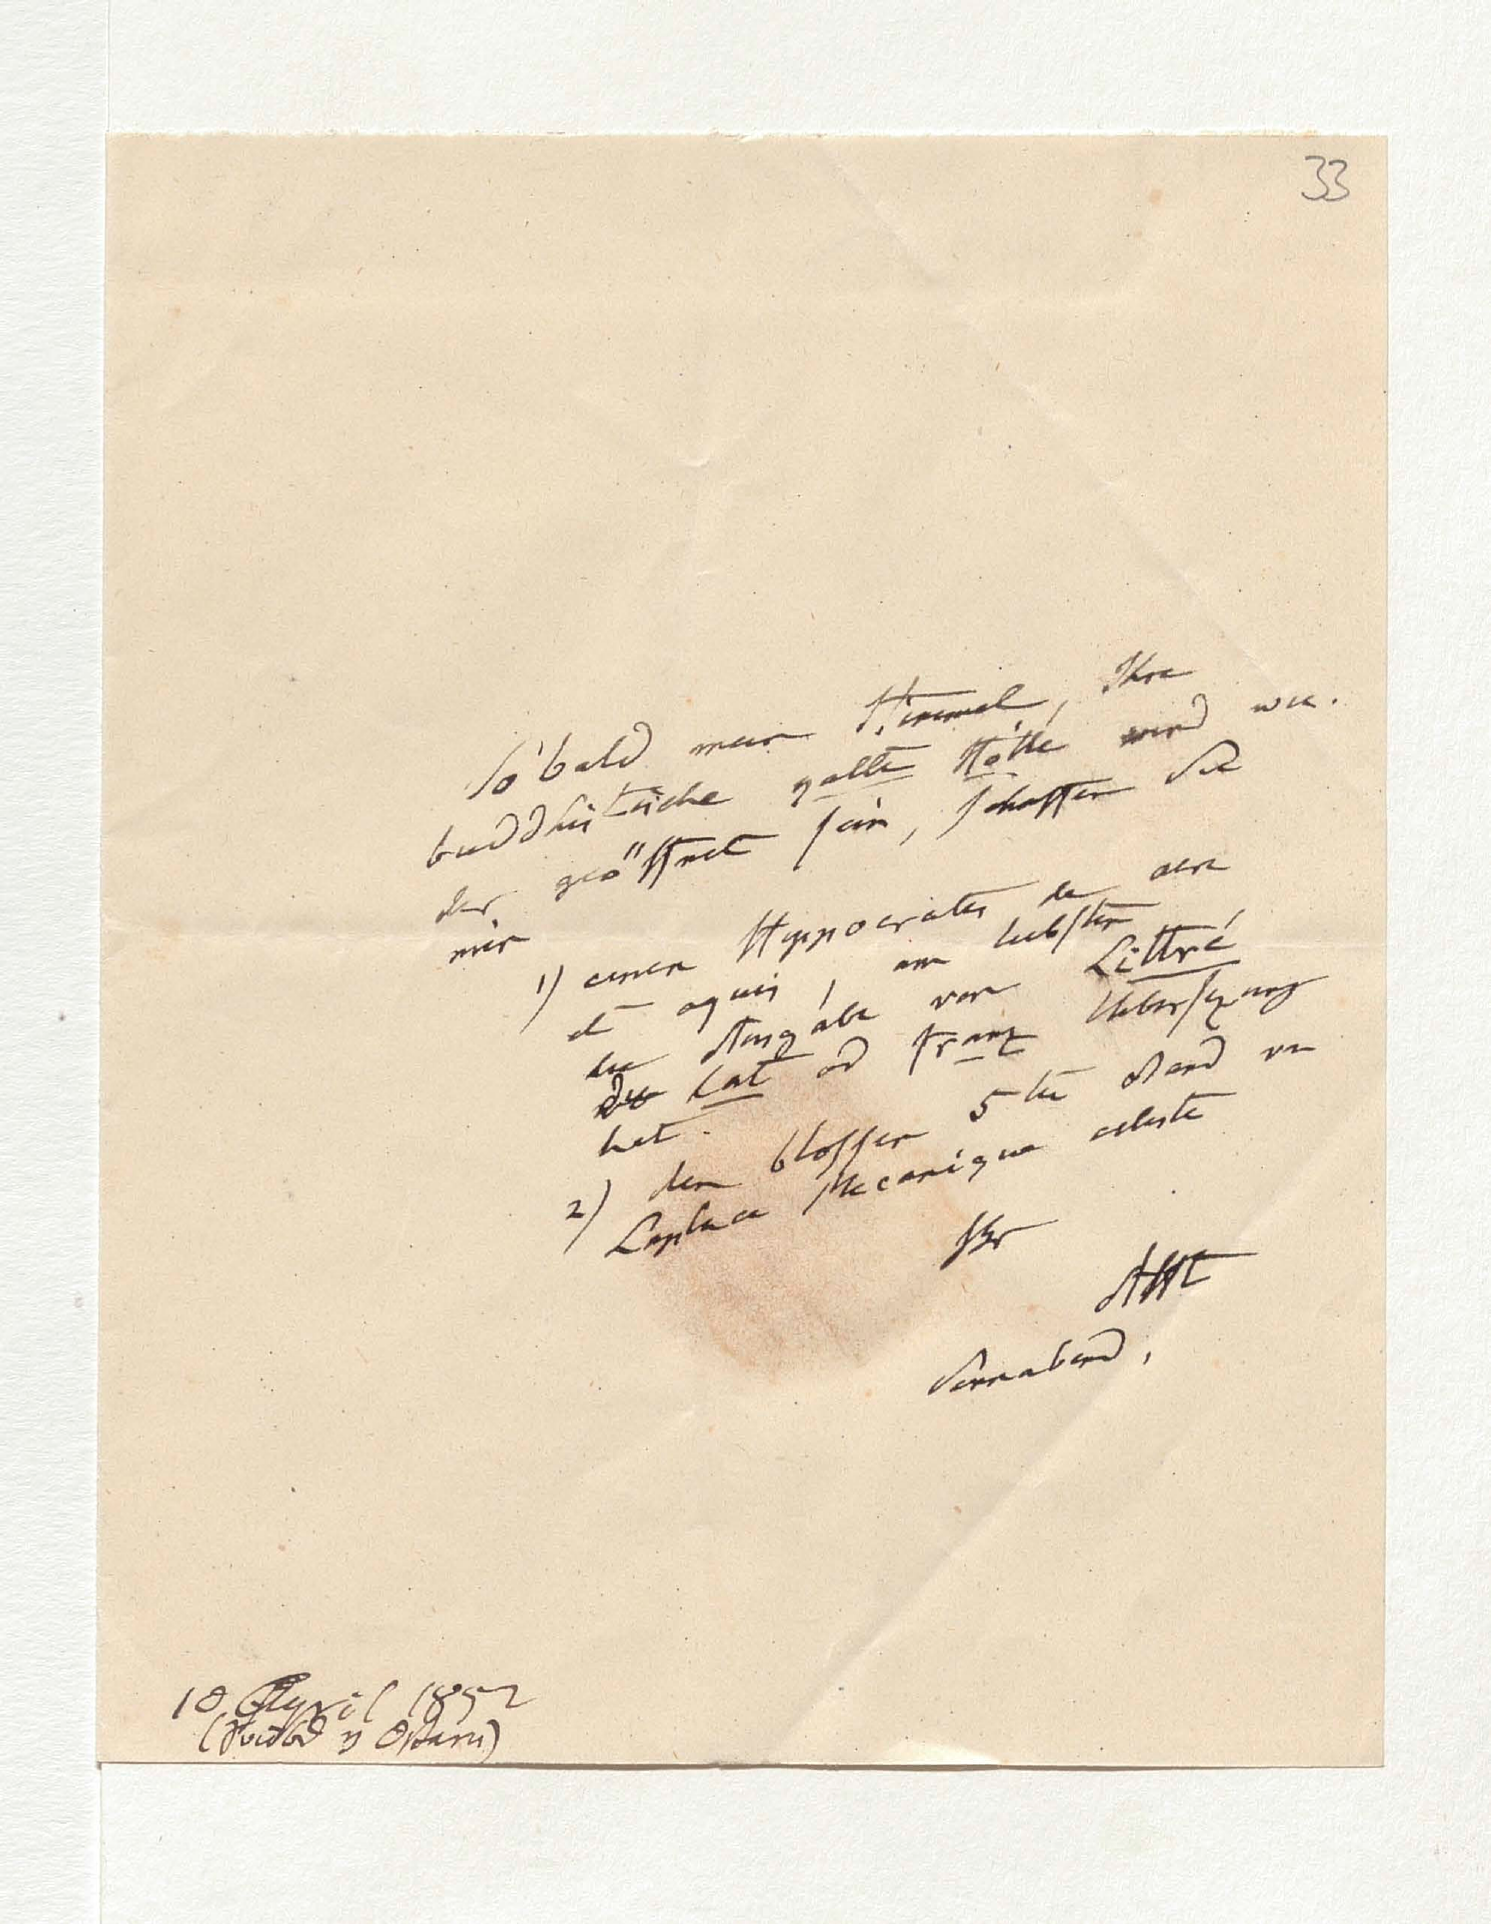 33
So bald mein Himmel, Ihre
buddhistische kalte Hölle wird wie-
der geöffnet sein, schaffen Sie
mir
1) einen Hyppocrates de aere
et aquis, am liebsten
die Ausgabe von Littré
die lat od franz Uebersezung
hat.
2) den blossen 5te Band von
Laplace Mecanique celeste
Ihr
AHt
Sonnabend,
10 April 1852